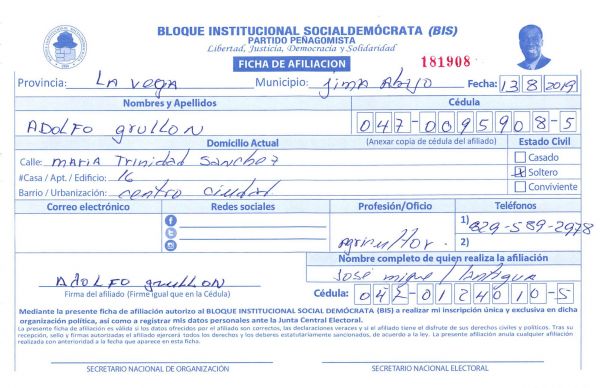 BLOQUE INSTITUCIONAL SOCIALDEMÓCRATA (BIS)
PARTIDO PEÑAGOMISTA
Libertad, Justicia, Democracia y Solidaridad
FICHA DE AFILIACION
181908
Provincia: LA Vega Municipio: Jima Abajo Fecha: 13 8 2019
Nombres y Apellidos Cédula
ADOLFO grullon 047-0095908-5
Domicilio Actual (Anexar copia de cédula del afiliado) Estado Civil
Calle: MARIA Trinidad Sanchez Casado
#Casa / Apt. / Edificio: 16 Soltero
Barrio / Urbanización: centro ciudad Conviviente
Correo electrónico Redes sociales Profesión/Oficio Teléfonos
1) 829-589-2978
Agricultor. 2)
Nombre completo de quien realiza la afiliación
José miguel Antigua
ADOLFO grullon
Firma del afiliado (Firme igual que en la Cédula) Cédula: 047-0124010-5
Mediante la presente ficha de afiliación autorizo al BLOQUE INSTITUCIONAL SOCIAL DEMÓCRATA (BIS) a realizar mi inscripción única y exclusiva en dicha
organización política, así como a registrar mis datos personales ante la Junta Central Electoral.
La presente ficha de afiliación es válida si los datos ofrecidos por el afiliado son correctos, las declaraciones veraces y si el afiliado tiene el disfrute de sus derechos civiles y políticos. Tras su
recepción, sello y firmas autorizadas el afiliado ejercerá todos los derechos y los deberes estatutariamente sancionados, de acuerdo a la ley. La presente afiliación anula cualquier afiliación
realizada con anterioridad a la fecha que aparece en esta ficha.
SECRETARIO NACIONAL DE ORGANIZACIÓN SECRETARIO NACIONAL ELECTORAL